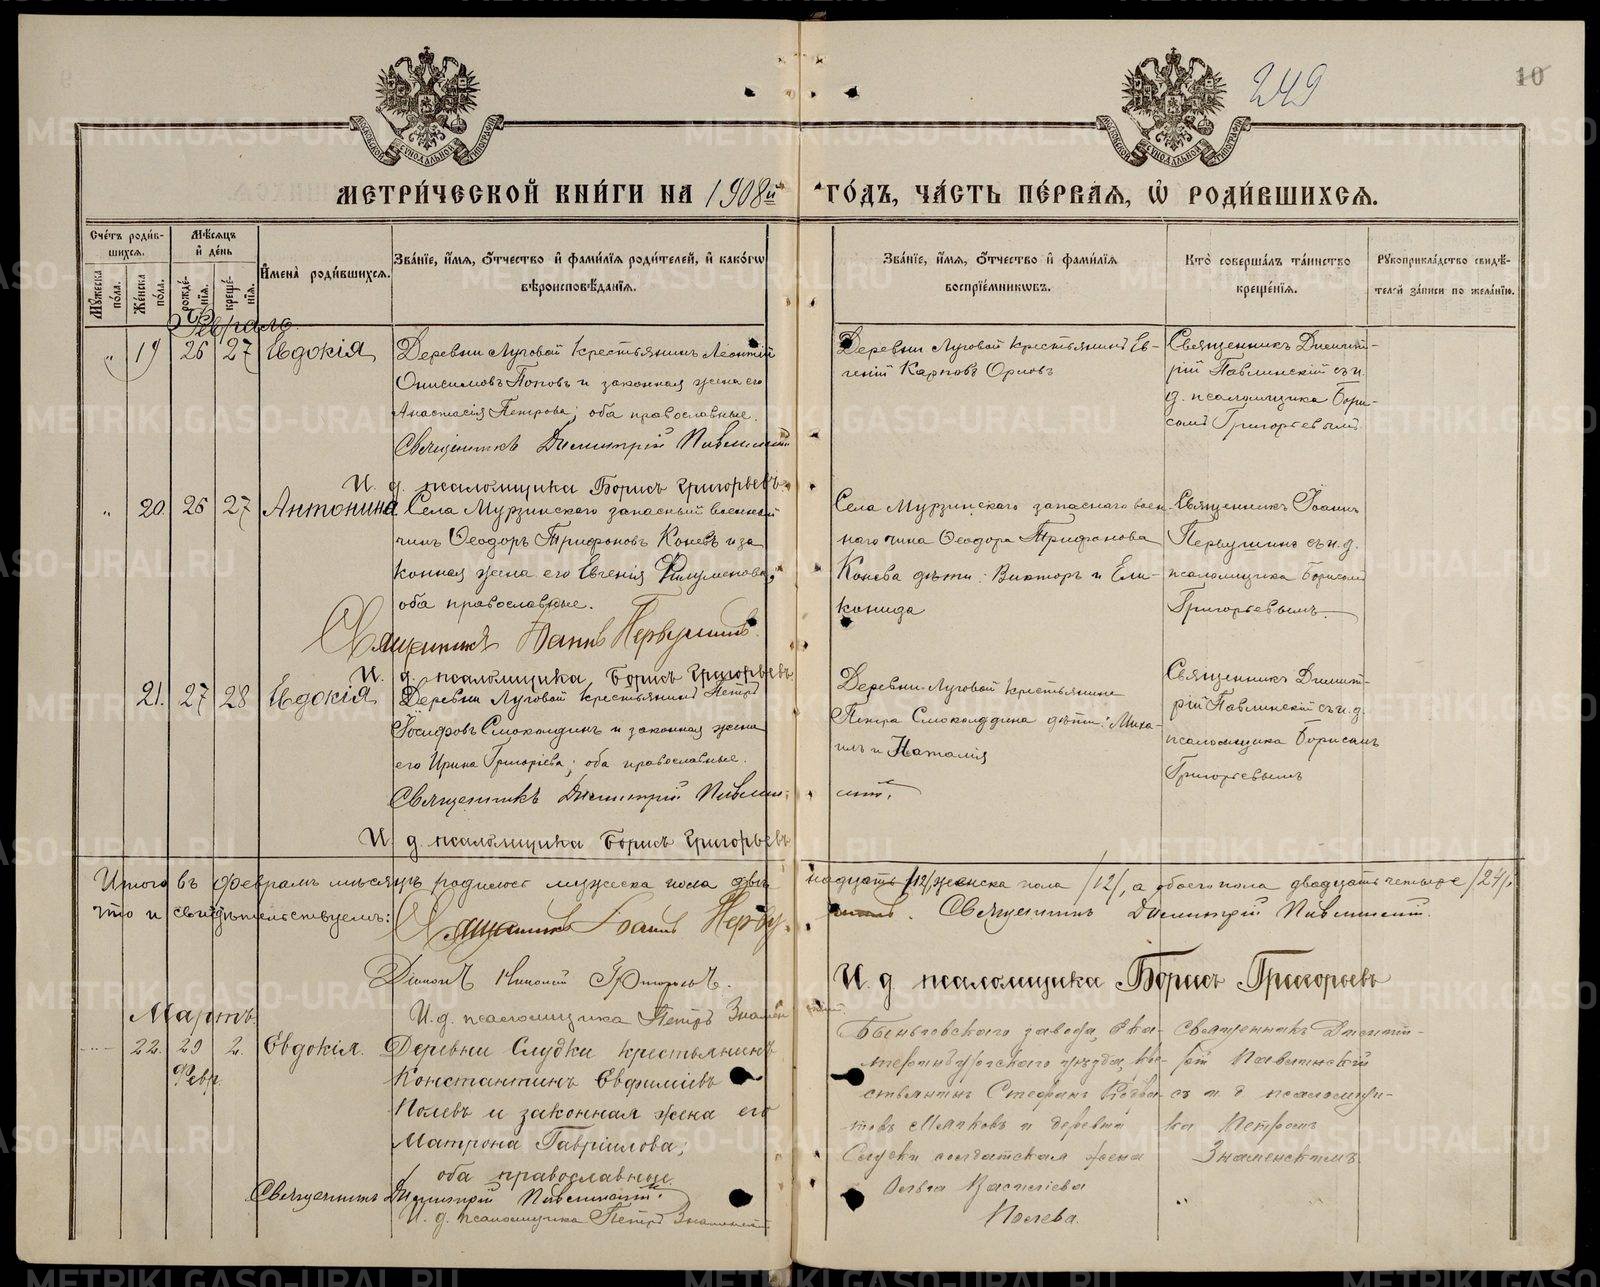 249
10
МЕТРИ́ЧЕСКОЙ КНИ́ГИ НА 1908й ГО́ДЪ, ЧА́СТЬ ПЕ́РВАЯ, Ѽ РОДИ́ВШИХСЯ.
Сче́тъ роди́в-
шихся.
Мѣ́сяцъ
и҆ де́нь
Му́жеска
по́ла.
Же́нска
по́ла.
рожде́-
нїя.
креще́-
нїя.
И҆мена̀ роди́вшихся.
Зва́нїе, и҆́мя, ѻ҆́тчество и҆ фами́лїя роди́телей, и҆ како́гѡ
вѣроисповѣ́данїя.
Зва́нїе, и҆́мя, ѻ҆́тчество и҆ фами́лїя
воспрїе́мникѡвъ.
Кто̀ соверша́лъ та́инство
креще́нїя.
Рꙋкоприкла́дство свидѣ́-
телей за́писи по жела́нїю.
Февраль
„ 19 26 27 Евдокія
Деревни Луговой крестьянинъ Леонтій
Онисимовъ Поповъ и законная жена его
Анастасія Петрова; оба православные.
Священникъ Димитрій Павлинскій
И. д. псаломщика Борисъ Григорьевъ
Деревни Луговой крестьянинъ Ев-
геній Карповъ Орловъ
Священникъ Димит-
рій Павлинскій съ и.
д. псаломщика Бори-
сомъ Григорьевымъ
„ 20. 26 27 Антонина
Села Мурзинскаго запасный военный
чинъ Ѳеодоръ Трифоновъ Коневъ и за
конная жена его Евгенія Филуменова;
оба православные.
Священникъ Іоаннъ Первушинъ.
И. д. псаломщика, Борисъ Григорьевъ
Села Мурзинскаго запаснаго воен-
наго чина Ѳеодора Трифонова
Конева дѣти: Викторъ и Ели-
конида
Священникъ Іоаннъ
Первушинъ съ и. д.
псаломщика Борисомъ
Григорьевымъ
21. 27 28 Евдокія
Деревни Луговой крестьянинъ Петръ
Іосифовъ Смоколдинъ и законная жена
его Ирина Григоріева; оба православные.
Священникъ Димитрій Павлин-
скій.
И. д. псаломщика Борисъ Григорьевъ
Деревни Луговой крестьянина
Петра дѣти: Миха-
илъ и Наталія
Священникъ Димит-
рій Павлинскій съ и. д.
псаломщика Борисомъ
Григорьевымъ
Итого въ Февралѣ мѣсяцѣ родилось мужеска пола две надцать /12/ женска пола /12/, а обоего пола двадцать четыре /24/,
что и свидѣтельствуемъ: Священникъ Іоаннъ Перву шинъ. Священникъ Димитрій Павлинскій.
Діаконъ Григорьевъ.
И. д. псаломщика Борисъ Григорьевъ
И. д. псаломщика Петръ Знамен скій.
Мартъ
22. 29 2. Евдокія.
Февр.
Деревни Слудки крестьянинъ
Константинъ Евфиміевъ
Полевъ и законная жена его
Матрона Гавріилова;
оба православные.
Священникъ Димитрій Павлинскій.
И. д. псаломщика Петръ Знаменскій
Быньговскаго завода, Ека-
теринбургскаго уѣзда, кре-
стьянинъ Стефанъ
товъ и деревни
Слудки солдатская жена
Ольга Василіева
Полева.
Священникъ Димит-
рій Павлинскій
съ и. д. псаломщи-
ка Петромъ
Знаменскимъ
METRIKI.GASO-URAL.RU